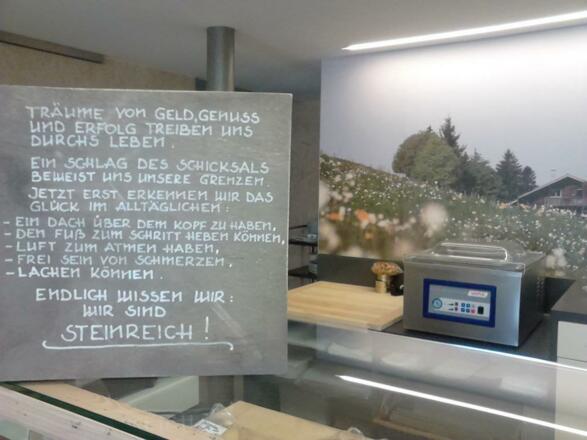 TRÄUME VON GELD, GENUSS
UND ERFOLG TREIBEN UNS
DURCHS LEBEN.
EIN SCHLAG DES SCHICKSALS
BEWEIST UNS UNSERE GRENZEN.
JETZT ERST ERKENNEN WIR DAS
GLÜCK IM ALLTÄGLICHEN:
- EIN DACH ÜBER DEM KOPF ZU HABEN,
- DEN FUß ZUM SCHRITT HEBEN KÖNNEN,
- LUFT ZUM ATMEN HABEN,
- FREI SEIN VON SCHMERZEN,
- LACHEN KÖNNEN.
ENDLICH WISSEN WIR:
WIR SIND
STEINREICH!